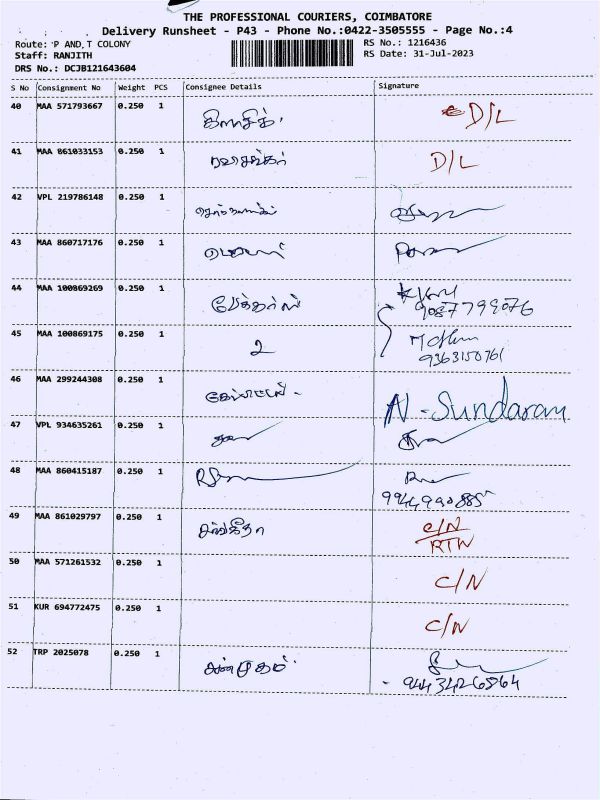 THE PROFESSIONAL COURIERS, COIMBATORE
Delivery Runsheet - P43 - Phone No.:0422-3505555 - Page No.:4
Route: P AND,T COLONY RS No.: 1216436
Staff: RANJITH RS Date: 31-Jul-2023
DRS No.: DCJB121643604
S No Consignment No Weight PCS Consignee Details Signature
40 MAA 571793667 0.250 1 D/L
41 MAA 861033153 0.250 1 D/L
42 VPL 219786148 0.250 1
43 MAA 860717176 0.250 1
44 MAA 100869269 0.250 1
9087799076
45 MAA 100869175 0.250 1 2
9363150761
46 MAA 299244308 0.250 1 N-Sundaram
47 VPL 934635261 0.250 1
48 MAA 860415187 0.250 1
9944990885
49 MAA 861029797 0.250 1 சங்கீதா C/N
RTN
50 MAA 571261532 0.250 1 C/N
51 KUR 694772475 0.250 1 C/N
52 TRP 2025078 0.250 1 சண்முகம்
9443426864